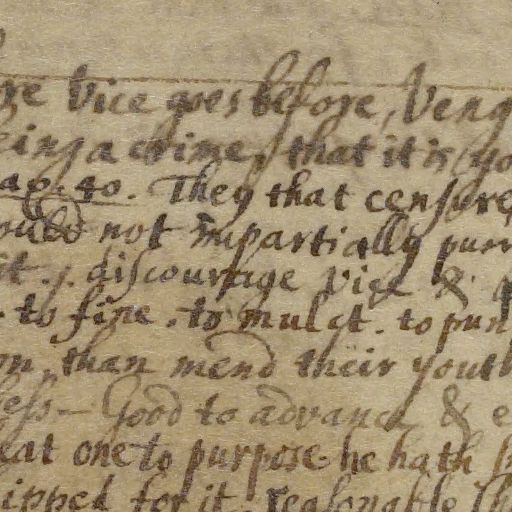 re Vice goes before, Veng
eing a crime, that it is yo
ap. 40. They that censure
ould not impartially pun
it. discourage Vice &
. to fine. to mulct. to pun
on, than mend their youth
less - Good to advance & e
eat one to purpose. he hath
ipped for it. reasonable